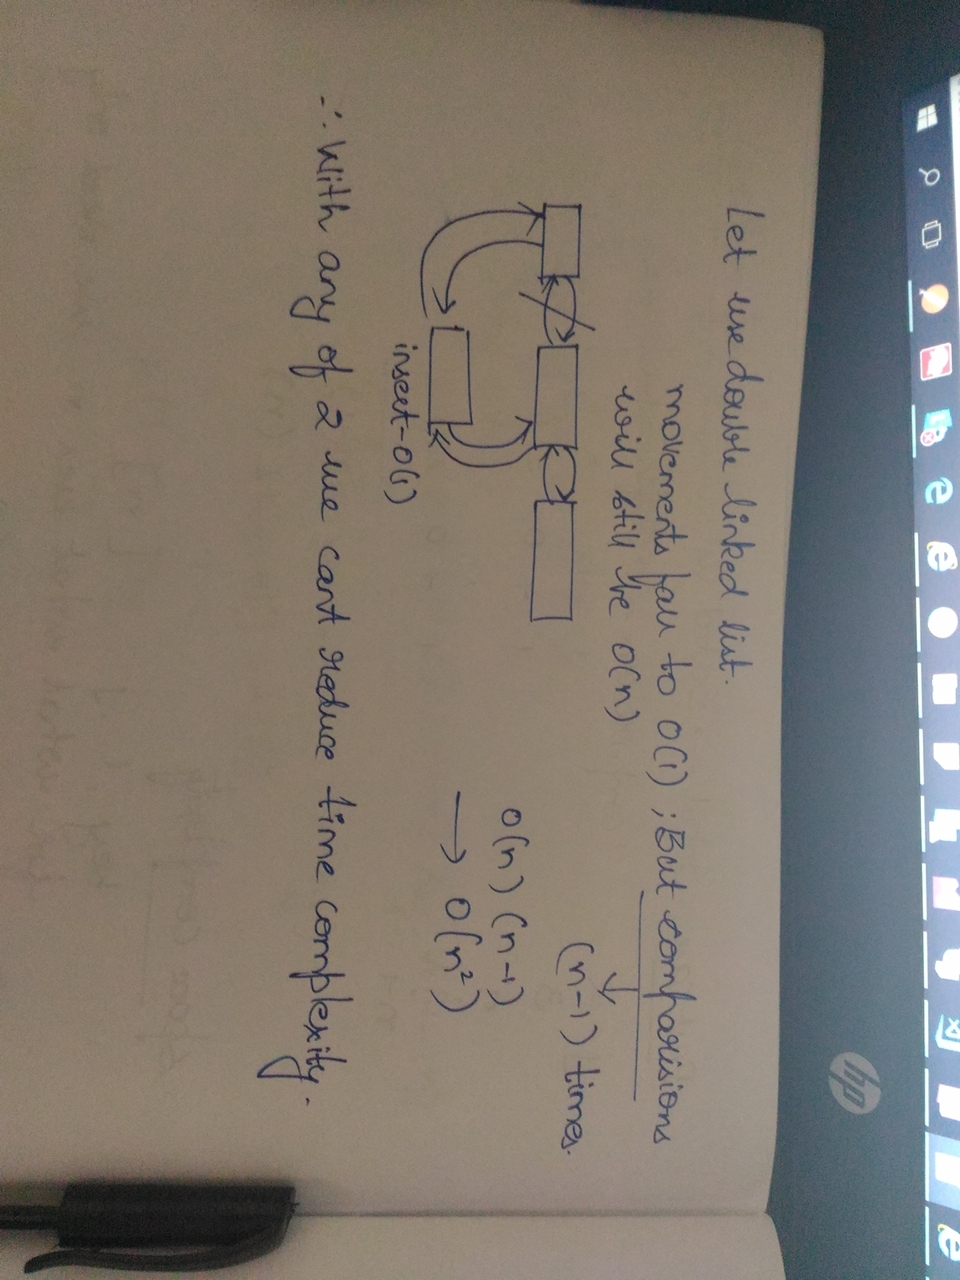 hp
Let use double linked list.
movements fall to O(1) ; But comparisions
will still be O(n)
(n-1) times.
O(n) (n-1)
→ O(n²)
insert-O(1)
∴ With any of 2 we cant reduce time complexity.